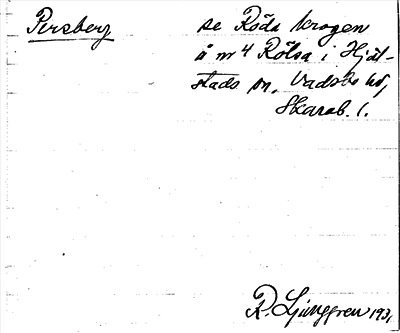 Persberg
se Röda krogen
å m 4 Rölsa i Hjäl-
stads sn, Vadsbo hd,
Skarab. l.
R. Ljunggren 1931